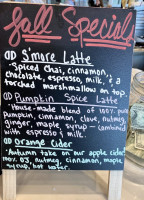 Fall Specials
S'more Latte
-Spiced Chai, cinnamon,
chocolate, espresso, milk, & a
torched marshmallow on top.
Pumpkin Spice Latte
-House-made blend of 100% pure
pumpkin, cinnamon, clove, nutmeg,
ginger, maple syrup - combined
with espresso & milk.
Orange Cider
-Autumn take on our apple cider:
nutmeg, cinnamon, maple
syrup, hot water.